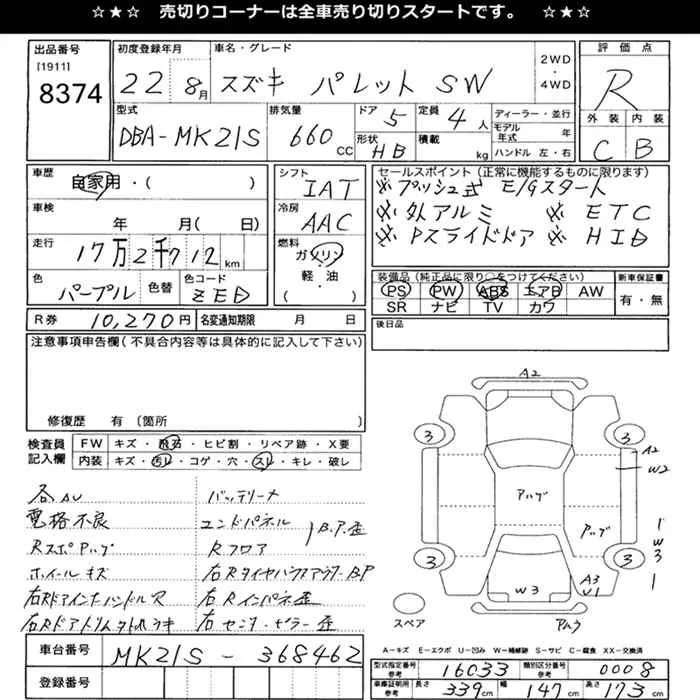 ☆★☆ 売切りコーナーは全車売り切りスタートです。 ☆★☆
出品番号
[1911]
8374
初度登録年月
22 8月
車名・グレード
スズキ パレット SW
2WD
・
4WD
評価点
R
外装 内装
C B
型式
DBA-MK21S
排気量
660 CC
ドア 5
形状 HB
定員 4人
積載 kg
ディーラー・並行
モデル年式 年
ハンドル 左・右
車歴
自家用・( )
車検
年 月( 日)
走行
17万2千712km
色
パープル
色替
色コード
ZED
シフト
IAT
冷房
AAC
燃料
ガソリン
軽・油
( )
セールスポイント（正常に機能するものに限ります）
※プッシュ式 E/Gスタート
※外アルミ ※ETC
※Pスライドドア ※HID
装備品（純正品に限り○をつけてください）
PS PW ABS エアB AW
SR ナビ TV カワ
新車保証書
有・無
R券 10,270円
名変通知期限 月 日
後日品
注意事項申告欄（不具合内容等は具体的に記入して下さい）
修復歴 有〔箇所 〕
検査員
記入欄
FW キズ・飛石・ヒビ割・リペア跡・X要
内装 キズ・汚レ・コゲ・穴・スレ・キレ・破レ
各AU バッテリーナ
電格不良 エンドパネル
B.P.歪
RスポアハゲRフロア
ホイールキズ 右RタイヤハウスアウターB.P
右RドアインナハンドルR 右Rインパネ歪
右Rドアトリム キ 右センターピラー歪
A2
3
3
A2
W2
アハゲ
アハゲ
3
3
W3
1
W3
1
A3
U1
スペア
車台番号
MK21S-368462
登録番号
A＝キズ E＝エクボ U＝凹み W＝補修跡 S＝サビ C＝腐食 XX＝交換済
型式指定番号
参考
16033
類別区分番号
参考
0008
車庫証明用
参考
長さ 339cm
幅 147cm
高さ 173cm